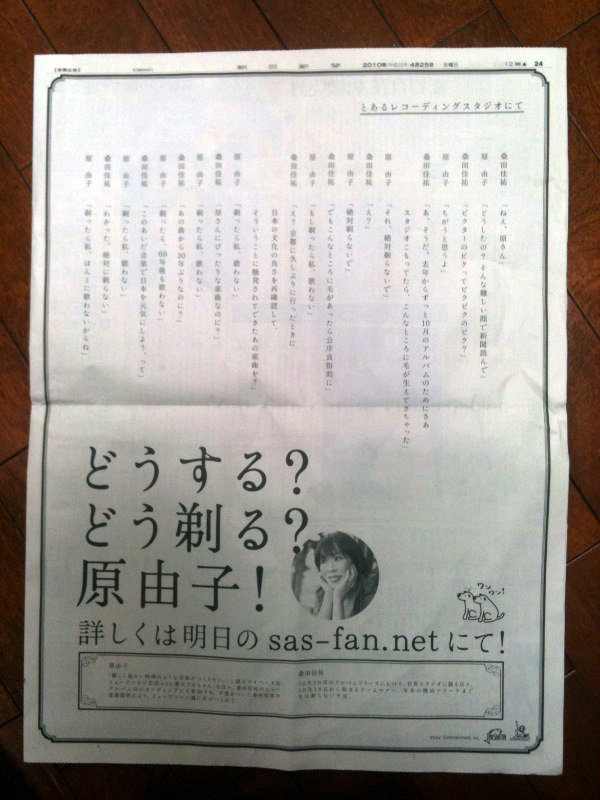 2010年(平成22年)4月25日 日曜日
24
とあるレコーディングスタジオにて
桑田佳祐 「ねえ、原さん」
原 由子 「どうしたの？そんな難しい顔で新聞読んで」
桑田佳祐 「ビクターのビクってビクビクのビク？」
原 由子 「ちがうと思うよ」
桑田佳祐 「あ、そうだ。去年からずっと10月のアルバムのためにさあ
スタジオこもってたら、こんなところに毛が生えてきちゃった」
原 由子 「それ、絶対剃らないで」
桑田佳祐 「え？」
原 由子 「絶対剃らないで」
桑田佳祐 「でもこんなところに毛があったら公序良俗的に」
原 由子 「もし剃ったら私、歌わない」
桑田佳祐 「え？京都に久しぶりに行ったときに
日本の文化の良さを再確認して、
そういうことに触発されてできたあの楽曲を？」
原 由子 「剃ったら私、歌わない」
桑田佳祐 「原さんにぴったりな楽曲なのに？」
原 由子 「剃ったら私、歌わない」
桑田佳祐 「あの曲から30年ぶりなのに？」
原 由子 「剃ったら、60年後も歌わない」
桑田佳祐 「このあいだ音楽で日本を元気にしよう、って」
原 由子 「剃ったら私、歌わない」
桑田佳祐 「わかった、絶対に剃らない」
原 由子 「剃ったら私、ほんとに歌わないからね」
どうする？
どう剃る？
原由子！
ワンワン！
詳しくは明日の sas-fan.netにて！
原由子
桑田佳祐
Victor Entertainment, Inc.